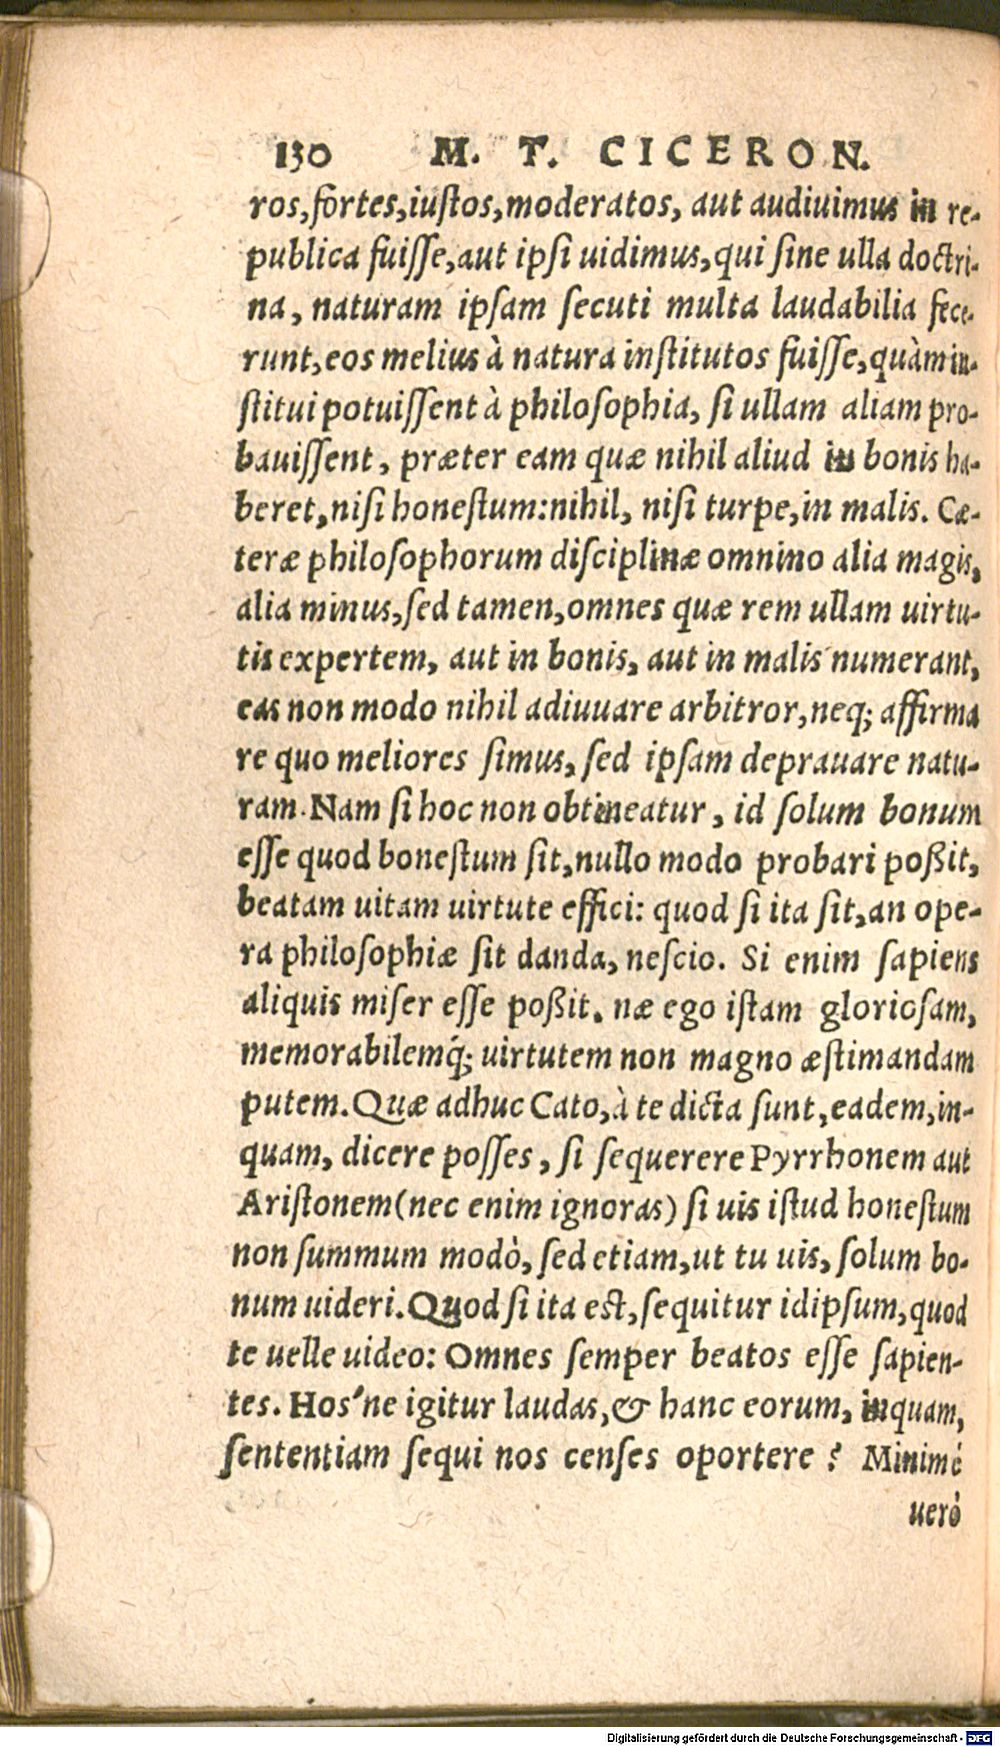 130 M. T. CICERON.
ros, fortes, iuſtos, moderatos, aut audiuimus in re-
publica fuiſſe, aut ipſi uidimus, qui ſine ulla doctri-
na, naturam ipſam ſecuti multa laudabilia fece-
runt, eos melius à natura inſtitutos fuiſſe, quàm in-
ſtitui potuiſſent à philoſophia, ſi ullam aliam pro-
bauiſſent, præter eam quæ nihil aliud in bonis ha-
beret, niſi honeſtum: nihil, niſi turpe, in malis. Cæ-
teræ philoſophorum diſciplinæ omnino alia magis,
alia minus, ſed tamen, omnes quæ rem ullam uirtu-
tis expertem, aut in bonis, aut in malis numerant,
eas non modo nihil adiuuare arbitror, neq; affirma
re quo meliores ſimus, ſed ipſam deprauare natu-
ram. Nam ſi hoc non obtineatur, id ſolum bonum
eſſe quod boneſtum ſit, nullo modo probari poßit,
beatam uitam uirtute effici: quod ſi ita ſit, an ope-
ra philoſophiæ ſit danda, neſcio. Si enim ſapiens
aliquis miſer eſſe poßit. næ ego iſtam glorioſam,
memorabilemq́; uirtutem non magno æſtimandam
putem. Quæ adhuc Cato, à te dicta ſunt, eadem, in-
quam, dicere poſſes, ſi ſequerere Pyrrhonem aut
Ariſtonem (nec enim ignoras) ſi uis iſtud honeſtum
non ſummum modò, ſed etiam, ut tu uis, ſolum bo-
num uideri. Quod ſi ita eſt, ſequitur idipſum, quod
te uelle uideo: Omnes ſemper beatos eſſe ſapien-
tes. Hos'ne igitur laudas, & hanc eorum, inquam,
ſententiam ſequi nos cenſes oportere? Minimè
uerò
Digitalisierung gefördert durch die Deutsche Forschungsgemeinschaft - DFG